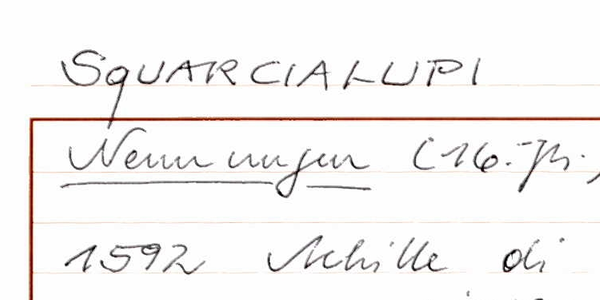 SQUARCIALUPI
Nennungen (16. Jh.)
1592 Achille di